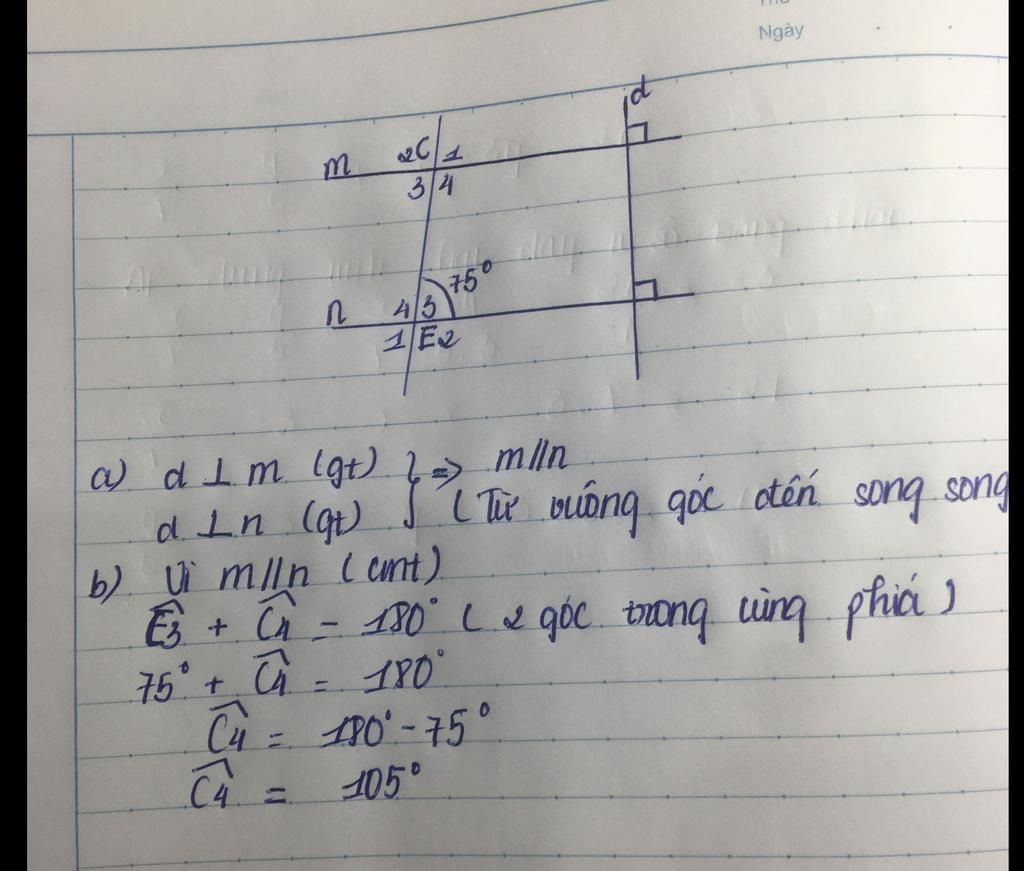 Ngày
d
m 2C 1
3 4
75°
n 4 3
1 E2
a) d ⊥ m (gt) } => m//n
d ⊥ n (gt) (Từ vuông góc đến song song
b) Vì m//n (cmt)
Ê3 + Ĉ4 = 180° ( 2 góc trong cùng phía )
75° + Ĉ4 = 180°
Ĉ4 = 180° - 75°
Ĉ4 = 105°